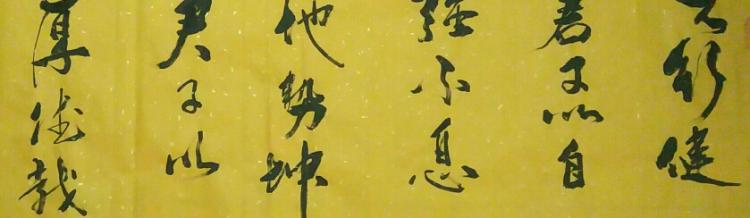 天行健
君子以自
强不息
地势坤
君子以
厚德载